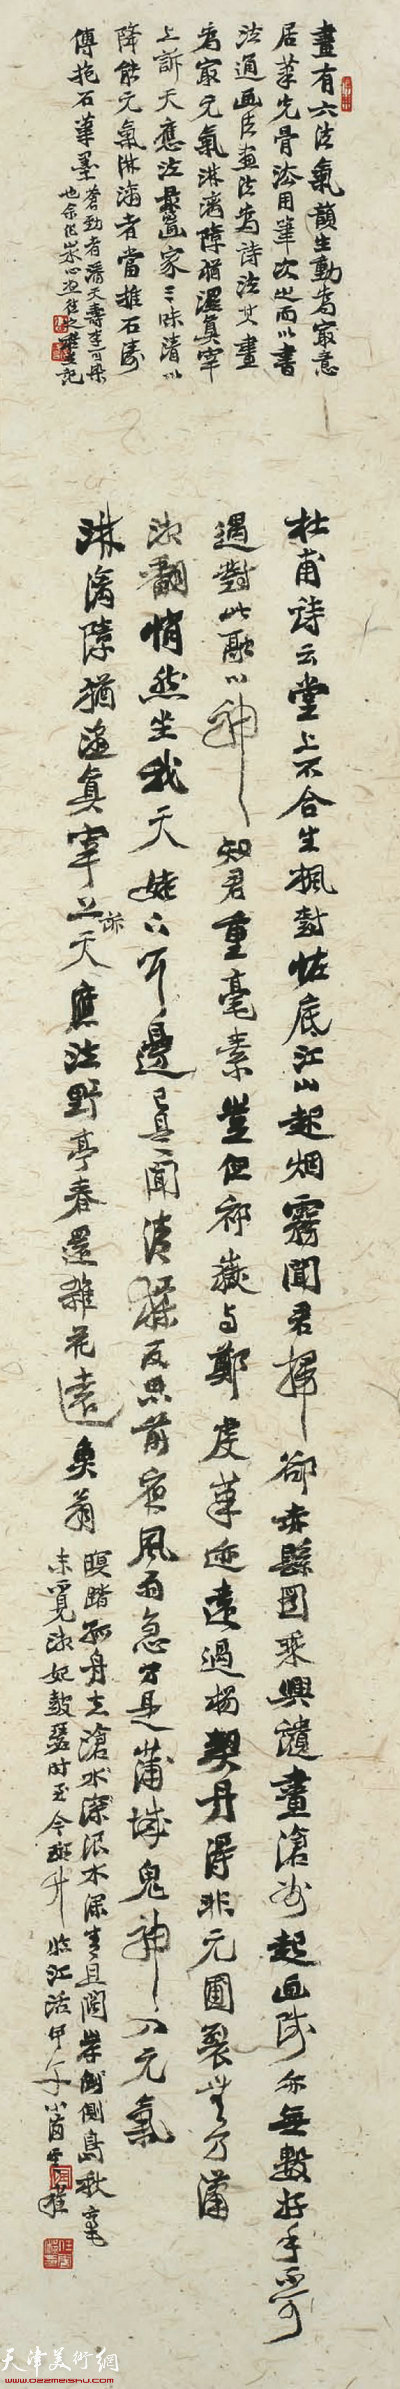 畫有六法氣韻生動為最意
居筆先骨法用筆次之而以書
法通画法画法為詩法其畫
為最元氣淋漓障猶濕真宰
上訴天應泣最画家三昧清以
降能元氣淋漓者當推石濤
傅抱石筆墨
蒼勁者潘天壽李可染
杜甫詩云堂上不合生楓樹怪底江山起烟霧聞君掃卻赤縣圖乘興遣畫滄洲起画師亦無數好手不可
遇對此融心神知君重毫素豈但祁嶽与鄭虔筆迹遠過楊契丹得非元圃裂無乃瀟
湘翻悄然坐我天姥下耳邊已是聞清猿反思前夜風雨急乃是蒲城鬼神入元氣
淋漓障猶濕真宰上訴天應泣野亭春還雜花遠魚翁
暝踏孤舟立滄水深浪水深青且闊岸側島秋毫
末不見湘妃鼓瑟時至今斑竹臨江活甲午
天津美術網
www.022meishu.com